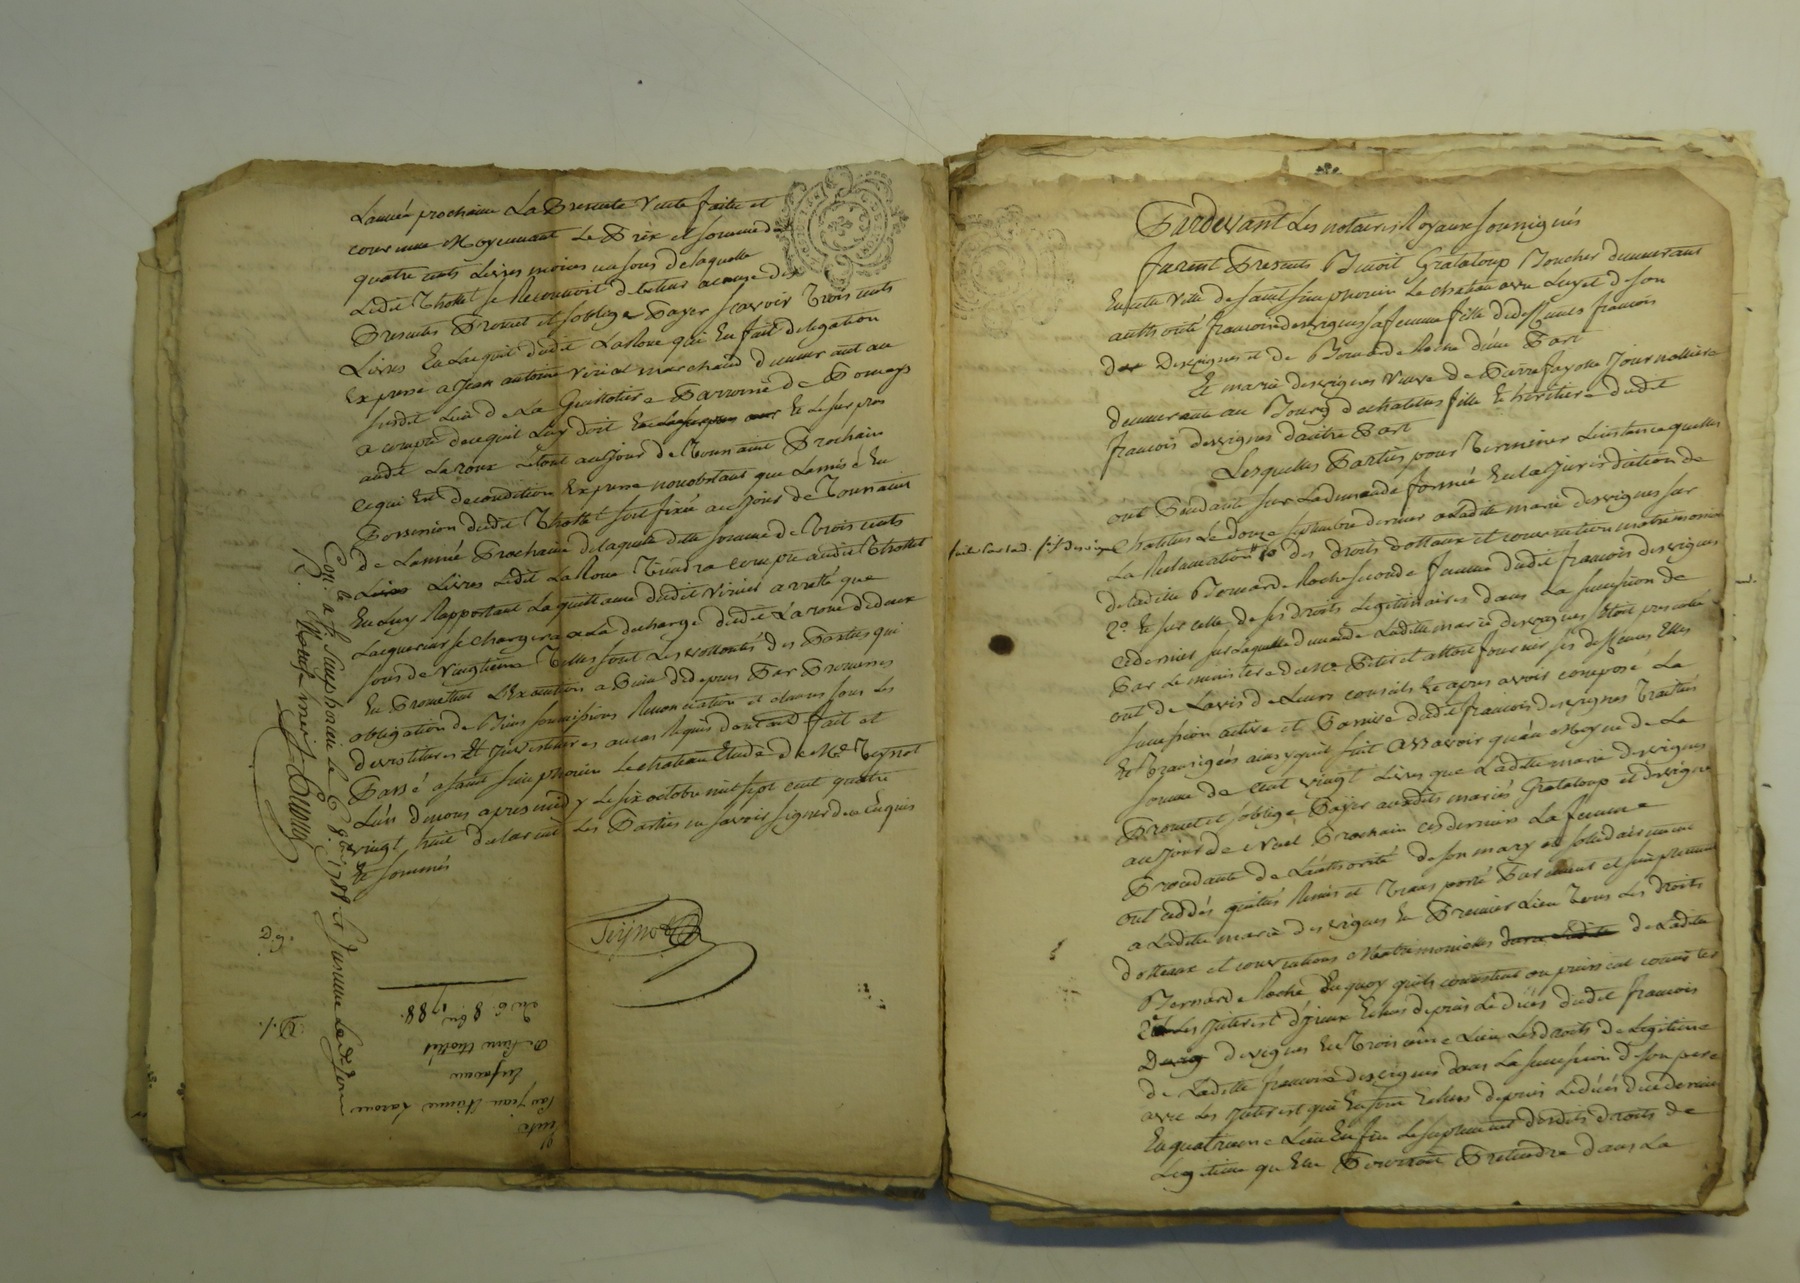 Lannée prochaine La Presente Vente faitte et
convenue Moyennant Le Prix et somme de
quatre cents Livres moins un sous de laquelle
Ledit Thollet se Reconnoit debiteur a cause des
Presentes Promet et soblige Payer scavoir trois cents
Livres En Lacquit dudit LaRoue qui En fait delegation
Expresse a Jean antoine Viricel marchand demeurant au
susdit Lieu de La Guillotiere Parroisse de Pomeys
a compte de ce quil Luy doit Et Le surplus
audit Laroue Letout au Jour de Tounaint Prochain
ce qui Est de condition Expresse nonobstant que Lamise En
Possession dudit Thollet soit fixée au Jour de Tounaint
de Lannée Prochaine de laquelle ditte somme de trois cents
Livres Ledit LaRoue Tiendra compte audit Thollet
En Luy Rapportant La quittance dudit Viricel arreté que
Lacquereur se chargera a La decharge dudit Laroue de deux
sous de vingtieme Telles sont Les vollontés des Parties qui
En Promettent LExecution a Peine de depens Par Promesses
obligation de Biens soumissions Renonciation et clauses sous les
devestitures Et Investitures au cas Requis dont acte fait et
Passé a saint simphorien Le chateau Etude de Me Teynot
Lun de nous apres midy Le six octobre mil sept cent quatre
vingt huit declarent Les Parties ne savoir signer de ce Enquis
Et sommés
Teynot
Con. a St. Simphorien le 6 8bre 1788
Vente
Par Jean Laroue
a Pierre thollet
du 6 8bre 1788.
Pardevant Les notaires Royaux soussignés
furent Presents Benoit Grataloup Boucher demeurant
En cette ville de saint simphorien Le chateau avec Luy et de son
authorité francoise desvignes sa femme fille de deffunts francois
desvignes et de Bernarde Roche dune Part
Et marie desvignes Veuve de Pierre fayolle Journalliere
demeurante au Bourg de chatelus fille Et héritiere dudit
francois desvignes dautre Part
Lesquelles Parties pour Terminer Linstance quelles
ont Pendante sur La demande formée En La Jurisdiction de
chatelus Le douze septembre dernier a Ladite marie desvignes sur
La Reclamation 1o des droits dottaux et convention matrimoniale
de Ladite Bernarde Roche seconde femme dudit francois desvignes
2o Et sur celle de ses droits Legitimaires dans La succession de
ce dernier sur Laquelle demande Ladite marie desvignes Etoit presentée
Par Le ministere de Me Petit et alloit fournir ses deffenses Elles
ont de Lavis de Leurs conseils Et apres avoir composé La
succession active et Passive dudit francois desvignes Traittés
Et Transigées ainsy quil suit assavoir quau Moyen de La
somme de cent vingt Livres que Ladite marie desvignes
Promet et soblige Payer auxdits mariés Grataloup et desvignes
au Jour de Noel Prochain ces derniers La femme
Procedante de Lauthorité de son mary et solidairement
ont ceddés quittés Remis et Transporté Par
a Ladite marie desvignes En Premier Lieu Tous Les droits
dotteaux et conventions Matrimonielles de Ladite
Bernarde Roche En quoy quils consistent ou puissent consister
2o Les Interest dyceux Echus depuis Le déces dudit francois
desvignes En Troisieme Lieu Les droits de Legitime
de Ladite francoise desvignes dans La succession de son pere
avec Les Interest qui En sont Echus depuis Le déces de ce dernier
En quatrieme Lieu Enfin Le supplement desdits droits de
Legitime quElle Pourroit Pretendre dans La